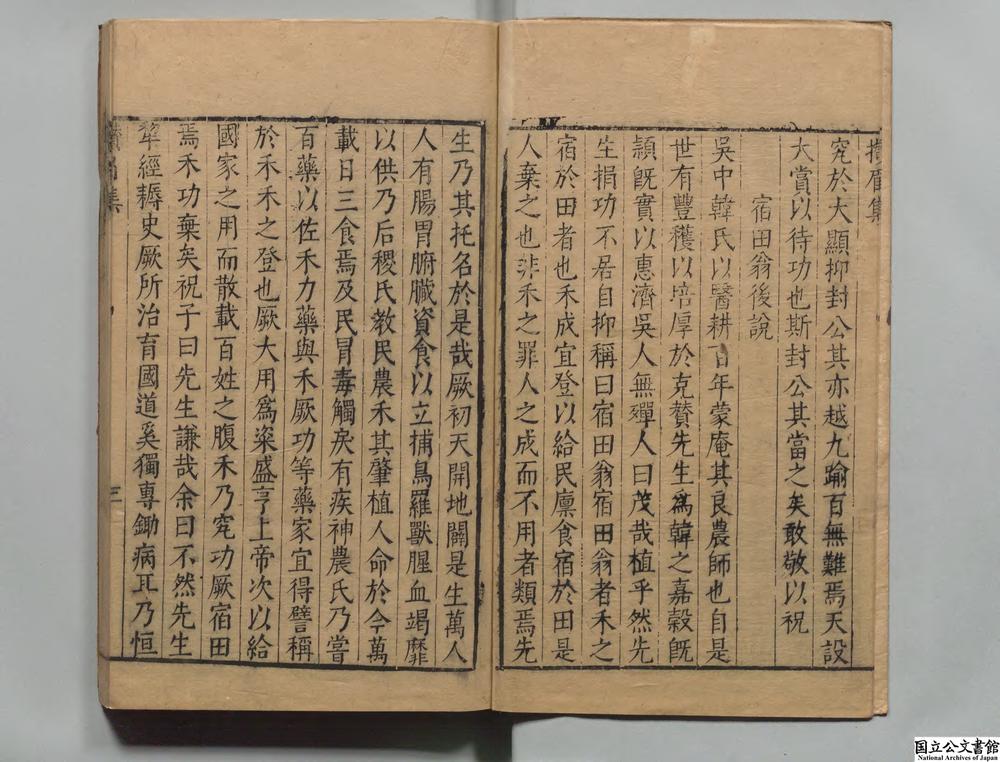 究於大顯抑封公其亦越九踰百無難焉天設
大賞以待功也斯封公其當之矣敢敬以祝
宿田翁後說
吳中韓氏以醫耕百年蒙庵其良農師也自是
世有豐穫以培厚於克贊先生為韓之嘉穀旣
穎旣實以惠濟吳人無殫人曰茂哉植乎然先
生捐功不居自抑稱曰宿田翁宿田翁者禾之
宿於田者也禾成宜登以給民廪食宿於田是
人棄之也非禾之罪人之成而不用者類焉先
生乃其托名於是哉厥初天開地闢是生萬人
人有腸胃腑臟資食以立捕鳥羅獸腥血竭靡
以供乃后稷氏教民農禾其肇植人命於今萬
載日三食焉及民冒毒觸戾有疾神農氏乃嘗
百藥以佐禾力藥與禾厥功等藥家宜得譬稱
於禾禾之登也厥大用為粢盛亨上帝次以給
國家之用而散載百姓之腹禾乃究功厥宿田
焉禾功棄矣祝子曰先生謙哉余曰不然先生
犂經耨史厥所治育國道奚獨專鋤病互乃恒
三
国立公文書館
National Archives of Japan